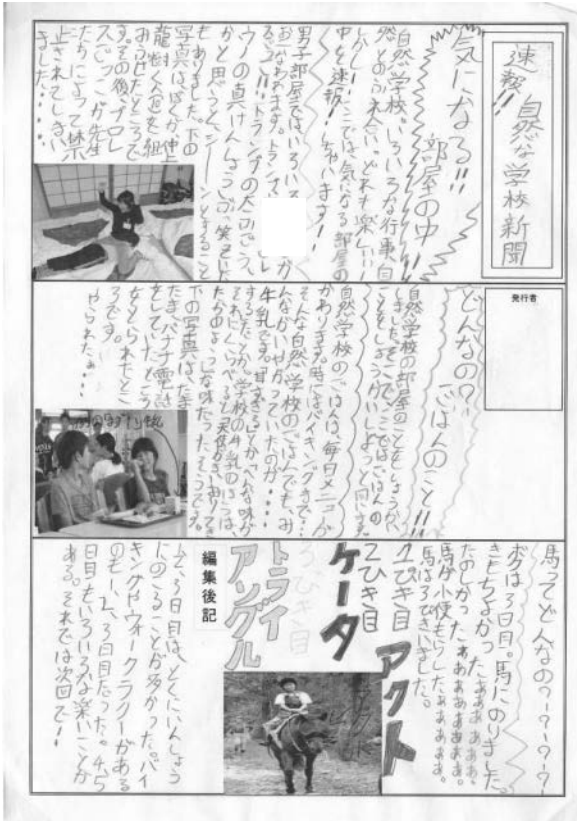 速報!!
自然な学校新聞
気になる!!
部屋の中
自然学校。いろいろな行事、自
然とのふれ合い、どれも楽しい!
しかし!ここでは、気になる部屋の
中を速報!しちゃいます!
男子部屋では、いろい
おこなわれます。トランプ
トランプの大ふごう、
ウノの真けんしょうぶ、笑える
かと思うと、シーンとすること
もありました。下の
写真は、ぼくが仲上
龍樹くんの足を組
おらせたところで
す。その後、プロレ
スごっこが先生
たちによって禁
止されてしまい
ました・・・・
発行者
どんなの?
ごはんのこと!!
自然学校の部屋のことをしょうかい
しましたが、そこで、ここではごはんの
ことをしょうかいしようと思います。
自然学校のごはんは、毎日メニューが
かわります。時にはバイキングまで・・
そんな自然学校のごはんでも、み
んながいやがっていたのが・・・・
牛乳です。甘すぎるとか、へんな味が
するだとか。学校の牛乳のほうは、
それにくらべると天使がまいおりてき
たかのような味だったそうです。
下の写真は、たま
たま、バナナ電話
をしていたところ
をとられたとこ
ろです。
やられたぁ・・・
馬ってどんなの?-?-?-?
ボクは3日目。馬にのりました。
きもちよかったぁぁぁぁぁぁぁ。
たのしかったぁぁぁぁぁぁぁぁ。
馬が小便もらしたぁぁぁぁぁぁ。
馬は3びきいました。
1ぴき目
アクト
2ひき目
ケータ
3びき目
トライアングル
編集後記
1、2、3日目は、とくにいんしょう
にのこることが多かった。バイ
キングやウォークラリーがある
のも1、2、3日目だった。4、5
日目もいろいろな楽しいことが
ある。それでは次回で!